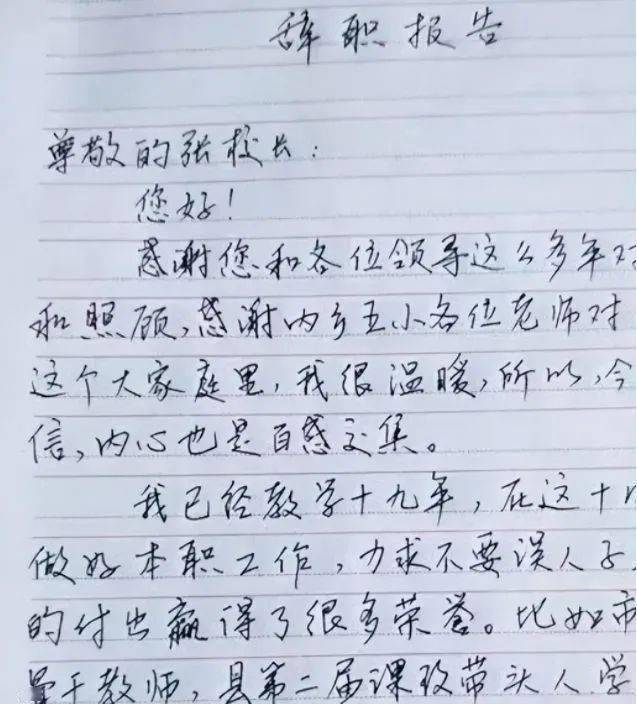 辞职报告
尊敬的张校长:
您好!
感谢您和各位领导这么多年对
和照顾,感谢内乡五小各位老师对
这个大家庭里,我很温暖,所以,今
信,内心也是百感交集。
我已经教学十九年,在这十
做好本职工作,力求不要误人子
的付出赢得了很多荣誉。比如市
骨干教师,县第二届课改带头人学